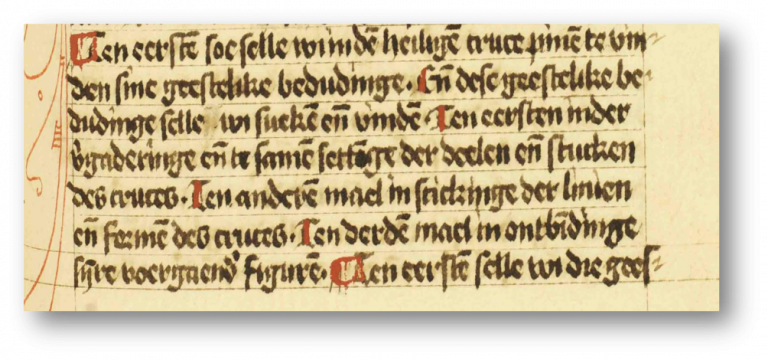 Ten eerstē soe selle wi in dē heiligē cruce pinē te vin-
den sine geestelike bedudinge. Eñ dese geestelike be-
dudinge selle wi suekē eñ vindē Ten eersten in der
v̉gaderinge eñ te samē settinge der deelen eñ stucken
des cruces. Ten anderē mael in stickinge der linien
eñ formē des cruces. Ten derdē mael in ontbīdinge
sijre voergaend̉ figurē. Ten eerstē selle wi die gees-